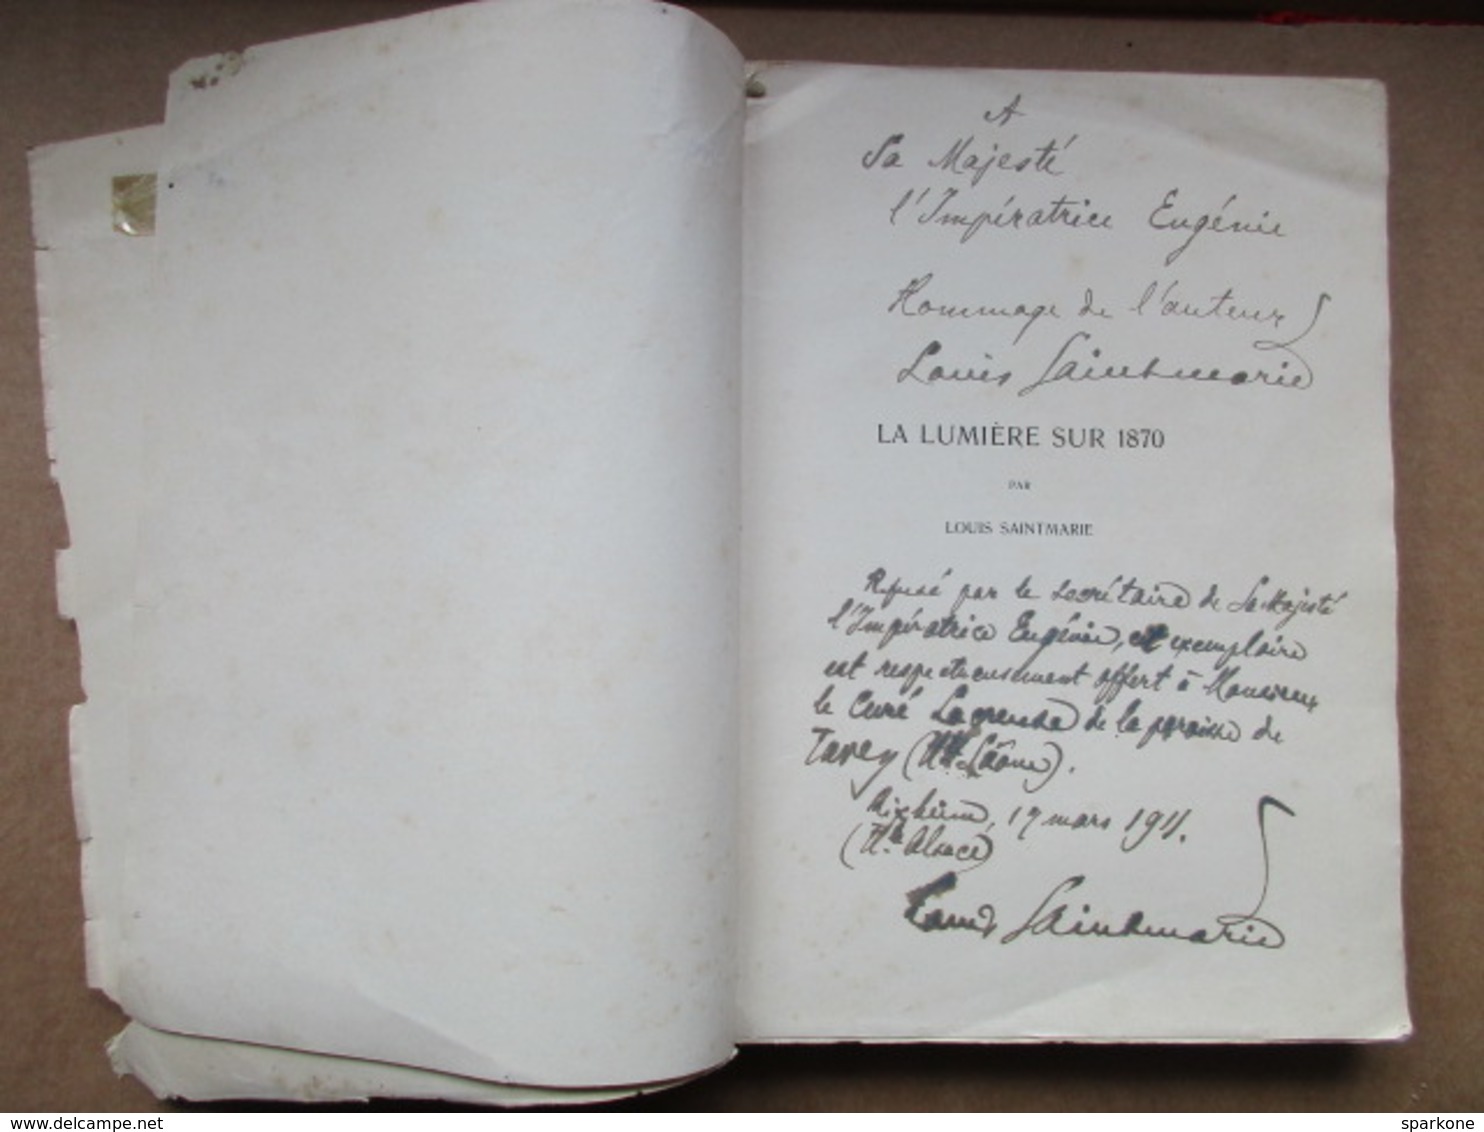 A
Sa Majesté
l'Impératrice Eugénie
Hommage de l'auteur
Louis Saintmarie
LA LUMIÈRE SUR 1870
PAR
LOUIS SAINTMARIE
Refusé par le secrétaire de Sa Majesté
l'Impératrice Eugénie, cet exemplaire
est respectueusement offert à Monsieur
le Curé de la paroisse de
Tavey (Hte Saône).
Rixheim, 17 mars 1911.
(Hte Alsace)
Louis Saintmarie
www.delcampe.net
sparkone